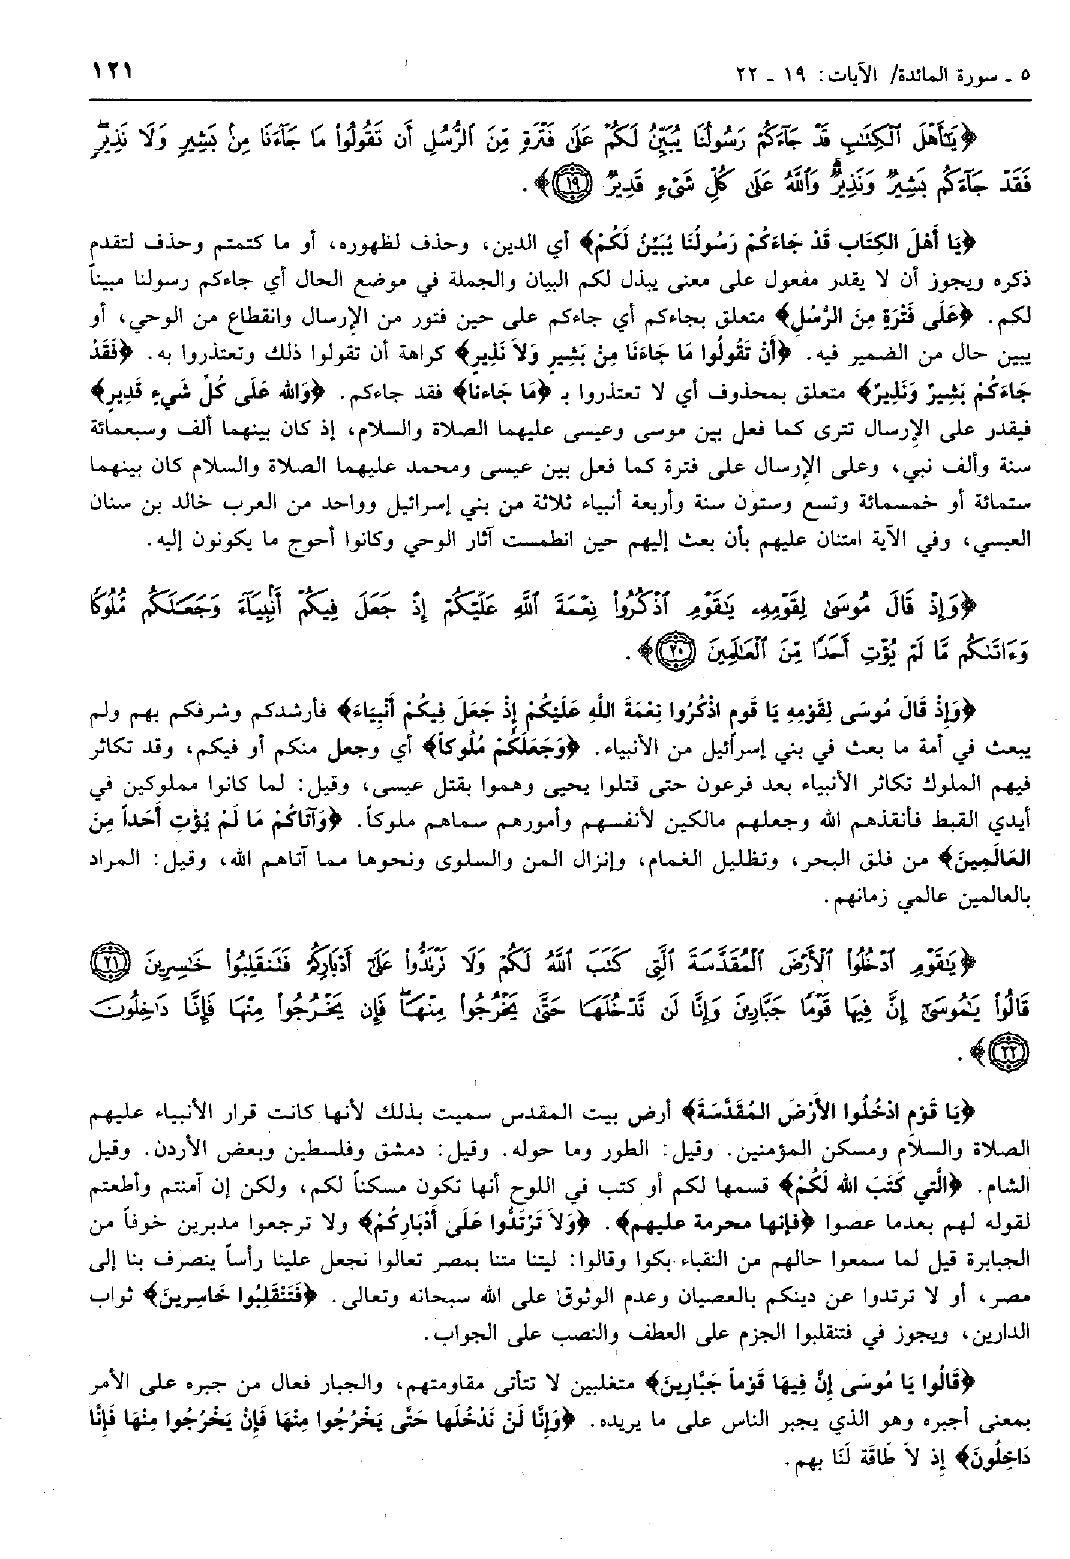 ٥ ـ سورة المائدة/ الآيات: ١٩ ـ ٢٢
١٢١
﴿يَٰٓأَهْلَ ٱلْكِتَٰبِ قَدْ جَآءَكُمْ رَسُولُنَا يُبَيِّنُ لَكُمْ عَلَىٰ فَتْرَةٍ مِّنَ ٱلرُّسُلِ أَن تَقُولُوا۟ مَا جَآءَنَا مِنۢ بَشِيرٍ وَلَا نَذِيرٍ ۖ
فَقَدْ جَآءَكُم بَشِيرٌ وَنَذِيرٌ ۗ وَٱللَّهُ عَلَىٰ كُلِّ شَىْءٍ قَدِيرٌ ١٩﴾.
﴿يَا أَهْلَ الكِتَابِ قَدْ جَاءَكُمْ رَسُولُنَا يُبَيِّنُ لَكُمْ﴾ أي الدين، وحذف لظهوره، أو ما كتمتم وحذف لتقدم
ذكره ويجوز أن لا يقدر مفعول على معنى يبذل لكم البيان والجملة في موضع الحال أي جاءكم رسولنا مبيناً
لكم. ﴿عَلَى فَتْرَةٍ مِنَ الرُّسُلِ﴾ متعلق بجاءكم أي جاءكم على حين فتور من الإرسال وانقطاع من الوحي، أو
يبين حال من الضمير فيه. ﴿أَنْ تَقُولُوا مَا جَاءَنَا مِنْ بَشِيرٍ وَلاَ نَذِيرٍ﴾ كراهة أن تقولوا ذلك وتعتذروا به. ﴿فَقَدْ
جَاءَكُمْ بَشِيرٌ وَنَذِيرٌ﴾ متعلق بمحذوف أي لا تعتذروا بـ ﴿مَا جَاءنا﴾ فقد جاءكم. ﴿وَالله عَلَى كُلِّ شَيءٍ قَدِيرٍ﴾
فيقدر على الإرسال تترى كما فعل بين موسى وعيسى عليهما الصلاة والسلام، إذ كان بينهما ألف وسبعمائة
سنة وألف نبي، وعلى الإرسال على فترة كما فعل بين عيسى ومحمد عليهما الصلاة والسلام كان بينهما
ستمائة أو خمسمائة وتسع وستون سنة وأربعة أنبياء ثلاثة من بني إسرائيل وواحد من العرب خالد بن سنان
العبسي، وفي الآية امتنان عليهم بأن بعث إليهم حين انطمست آثار الوحي وكانوا أحوج ما يكونون إليه.
﴿وَإِذْ قَالَ مُوسَىٰ لِقَوْمِهِۦ يَٰقَوْمِ ٱذْكُرُوا۟ نِعْمَةَ ٱللَّهِ عَلَيْكُمْ إِذْ جَعَلَ فِيكُمْ أَنۢبِيَآءَ وَجَعَلَكُم مُّلُوكًا
وَءَاتَىٰكُم مَّا لَمْ يُؤْتِ أَحَدًا مِّنَ ٱلْعَٰلَمِينَ ٢٠﴾.
﴿وَإِذْ قَالَ مُوسَى لِقَوْمِهِ يَا قَومِ اذْكُرُوا نِعْمَةَ اللَّهِ عَلَيْكُمْ إِذْ جَعَلَ فِيكُمْ أَنْبِيَاءَ﴾ فأرشدكم وشرفكم بهم ولم
يبعث في أمة ما بعث في بني إسرائيل من الأنبياء. ﴿وَجَعَلَكُمْ مُلُوكاً﴾ أي وجعل منكم أو فيكم، وقد تكاثر
فيهم الملوك تكاثر الأنبياء بعد فرعون حتى قتلوا يحيى وهموا بقتل عيسى، وقيل: لما كانوا مملوكين في
أيدي القبط فأنقذهم الله وجعلهم مالكين لأنفسهم وأمورهم سماهم ملوكاً. ﴿وَآتَاكُمْ مَا لَمْ يُؤْتِ أَحَداً مِنَ
العَالَمِينَ﴾ من فلق البحر، وتظليل الغمام، وإنزال المن والسلوى ونحوها مما آتاهم الله، وقيل: المراد
بالعالمين عالمي زمانهم.
﴿يَٰقَوْمِ ٱدْخُلُوا۟ ٱلْأَرْضَ ٱلْمُقَدَّسَةَ ٱلَّتِى كَتَبَ ٱللَّهُ لَكُمْ وَلَا تَرْتَدُّوا۟ عَلَىٰٓ أَدْبَارِكُمْ فَتَنقَلِبُوا۟ خَٰسِرِينَ ٢١
قَالُوا۟ يَٰمُوسَىٰٓ إِنَّ فِيهَا قَوْمًا جَبَّارِينَ وَإِنَّا لَن نَّدْخُلَهَا حَتَّىٰ يَخْرُجُوا۟ مِنْهَا فَإِن يَخْرُجُوا۟ مِنْهَا فَإِنَّا دَٰخِلُونَ
٢٢﴾.
﴿يَا قَوْمِ ادْخُلُوا الأَرْضَ المُقَدَّسَةَ﴾ أرض بيت المقدس سميت بذلك لأنها كانت قرار الأنبياء عليهم
الصلاة والسلام ومسكن المؤمنين. وقيل: الطور وما حوله. وقيل: دمشق وفلسطين وبعض الأردن. وقيل
الشام. ﴿الَّتي كَتَبَ الله لَكُمْ﴾ قسمها لكم أو كتب في اللوح أنها تكون مسكناً لكم، ولكن إن آمنتم وأطعتم
لقوله لهم بعدما عصوا ﴿فإنها محرمة عليهم﴾. ﴿وَلاَ تَرْتَدُّوا عَلَى أَدْبَارِكُمْ﴾ ولا ترجعوا مدبرين خوفاً من
الجبابرة قيل لما سمعوا حالهم من النقباء بكوا وقالوا: ليتنا متنا بمصر تعالوا نجعل علينا رأساً ينصرف بنا إلى
مصر، أو لا ترتدوا عن دينكم بالعصيان وعدم الوثوق على الله سبحانه وتعالى. ﴿فَتَنْقَلِبُوا خَاسِرِينَ﴾ ثواب
الدارين، ويجوز في فتنقلبوا الجزم على العطف والنصب على الجواب.
﴿قَالُوا يَا مُوسَى إِنَّ فِيهَا قَوْماً جَبَّارِينَ﴾ متغلبين لا تتأتى مقاومتهم، والجبار فعال من جبره على الأمر
بمعنى أجبره وهو الذي يجبر الناس على ما يريده. ﴿وَإِنَّا لَنْ نَدْخُلَها حَتَّى يَخْرُجُوا مِنْهَا فَإِنْ يَخْرُجُوا مِنْهَا فَإِنَّا
دَاخِلُونَ﴾ إِذ لاَ طَاقَة لَنَا بهم.